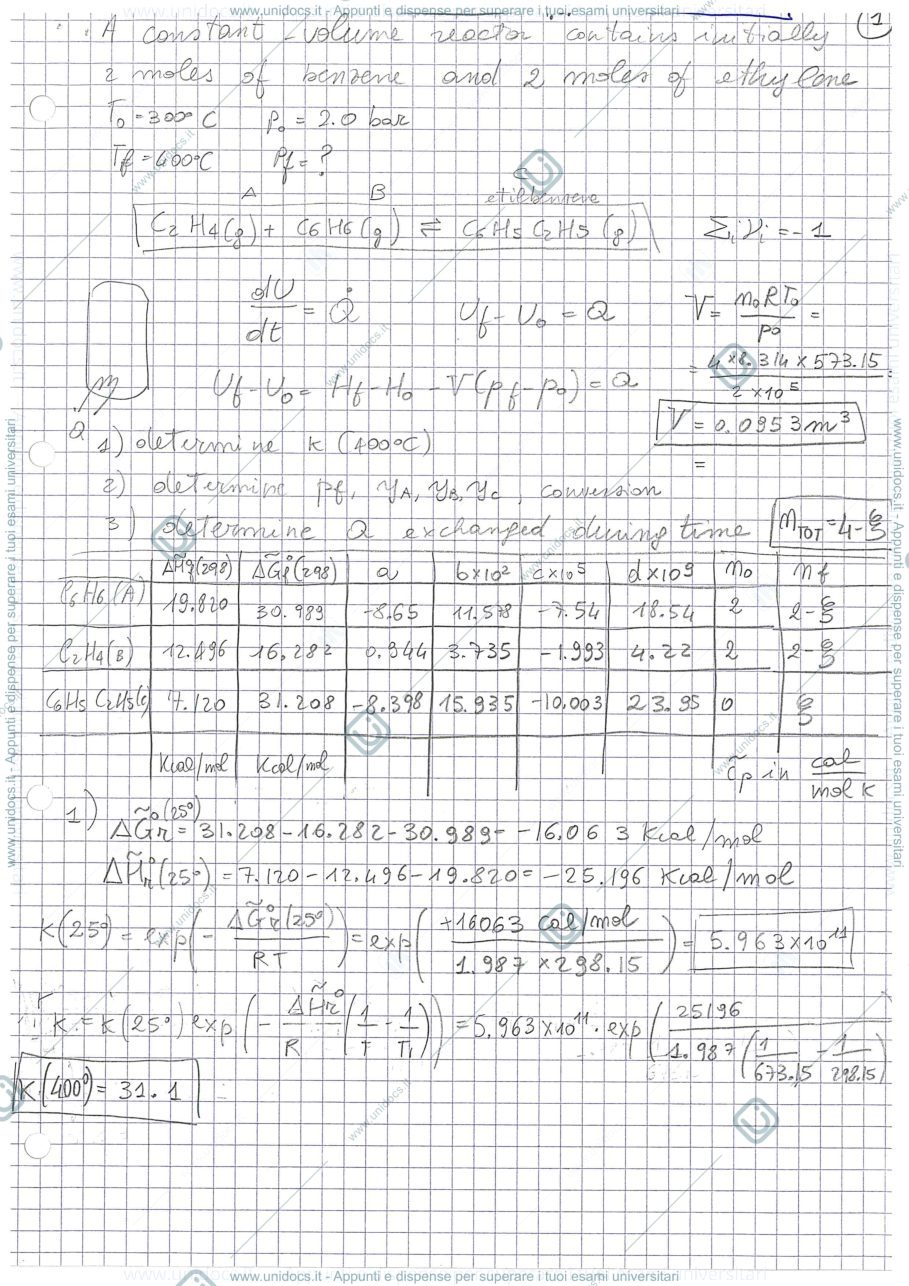 www.unidocs.it - Appunti e dispense per superare i tuoi esami universitari
1
A constant-volume reactor contains initially
2 moles of benzene and 2 moles of ethylene
T0 = 300°C P0 = 2.0 bar
Tf = 400°C Pf = ?
A B C
etilbenzene
C2H4(g) + C6H6(g) ⇌ C6H5C2H5(g) Σi νi = -1
dU/dt = Q̇ Uf - U0 = Q V = n0RT0/p0 =
= 4 x 8.314 x 573.15 / 2 x 10^5 =
Uf - U0 = Hf - H0 - V(pf - p0) = Q
V = 0.0953 m³
m
Q
=
1) determine K (400°C)
2) determine pf, yA, yB, yC, conversion
3) determine Q exchanged during time nTOT = 4-ξ
ΔH̃f(298) ΔG̃f°(298) a b x 10² c x 10⁵ d x 10⁹ n0 nf
C6H6(A) 19.820 30.989 -8.65 11.578 -7.54 18.54 2 2-ξ
C2H4(B) 12.496 16.282 0.944 3.735 -1.993 4.22 2 2-ξ
C6H5C2H5(c) 7.120 31.208 -8.398 15.935 -10.003 23.95 0 ξ
Kcal/mol Kcal/mol c̃p in cal/mol K
1) ΔG̃r°(25°) = 31.208 - 16.282 - 30.989 = -16.063 Kcal/mol
ΔH̃r°(25°) = 7.120 - 12.496 - 19.820 = -25.196 Kcal/mol
K(25°) = exp(- ΔG̃r°(25°)/RT) = exp(+16063 cal/mol / 1.987 x 298.15) = 5.963 x 10¹¹
K = K(25°) exp(- ΔH̃r°/R (1/T - 1/T1)) = 5.963 x 10¹¹ · exp(25196/1.987 (1/673.15 - 1/298.15))
K(400°) = 31.1
www.unidocs.it - Appunti e dispense per superare i tuoi esami universitari